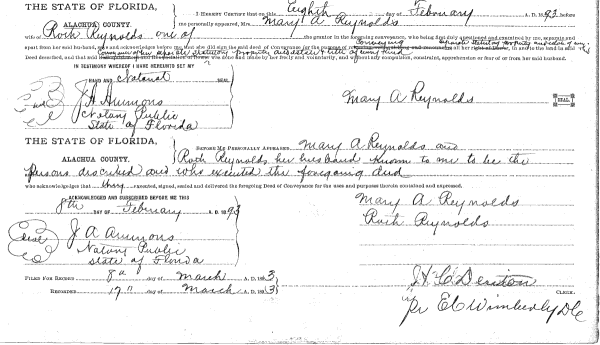 THE STATE OF FLORIDA,
ALACHUA COUNTY.
I HEREBY CERTIFY that on this Eighth day of February A. D. 1893 before
me personally appeared, Mrs. Mary A Reynolds
wife of Roch Reynolds one of the grantor in the foregoing conveyance, who being first duly questioned and examined by me, separate and
apart from her said husband, and acknowledge before me, that she did sign said deed of conveyance for the purpose of
Deed described, and that said was done and made by her freely and voluntarily, and without any compulsion, constraint, apprehension or fear of or from her said husband.
IN TESTIMONY WHEREOF I HAVE HEREUNTO SET MY
HAND AND Notarial SEAL
Seal
J A Ammons
Notary Public
State of Florida
Mary A Reynolds
SEAL.
THE STATE OF FLORIDA,
ALACHUA COUNTY.
BEFORE ME PERSONALLY APPEARED, Mary A Reynolds and
Roch Reynolds her husband known to me to be the
persons described and who executed the foregoing deed
who acknowledges that they executed, signed, sealed and delivered the foregoing Deed of Conveyance for the uses and purposes therein contained and expressed.
ACKNOWLEDGED AND SUBSCRIBED BEFORE ME THIS
8th DAY OF February A. D. 1893
Mary A Reynolds
Roch Reynolds
Seal
J A Ammons
Notary Public
State of Florida
FILED FOR RECORD 8th day of March A. D. 1893
RECORDED 17th day of March A. D. 1893
J. H. C. Denton CLERK.
pr E C Wimberly DC